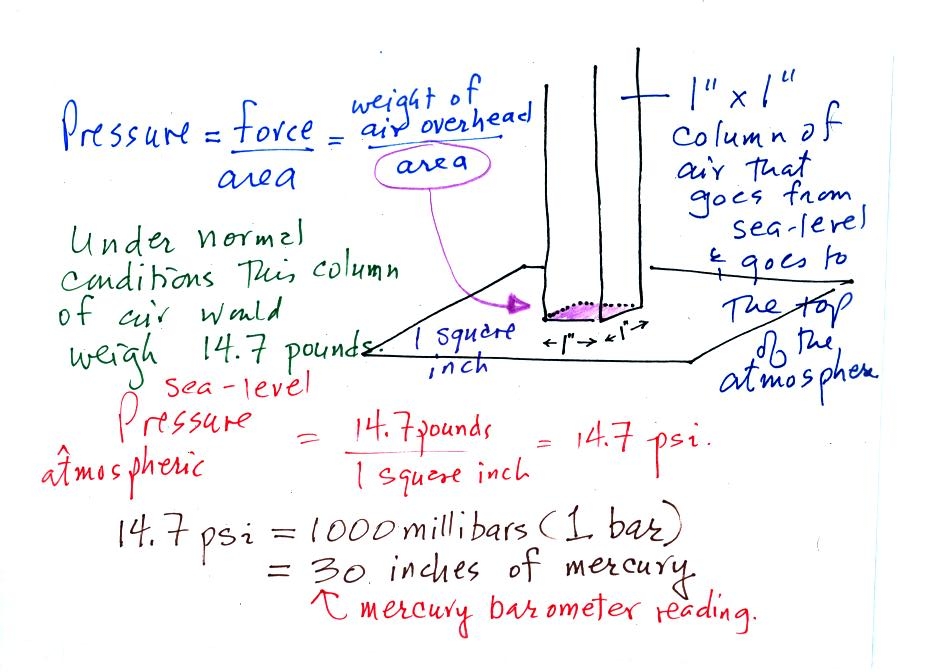 Pressure = force / area = weight of air overhead / area
1" x 1"
column of
air that
goes from
sea-level
& goes to
The top
of the
atmosphere
Under normal
conditions This column
of air would
weigh 14.7 pounds.
1 square
inch
1"
1"
sea-level
Pressure
atmospheric
= 14.7 pounds / 1 square inch = 14.7 psi.
14.7 psi = 1000 millibars (1 bar)
= 30 inches of mercury
↑ mercury barometer reading.